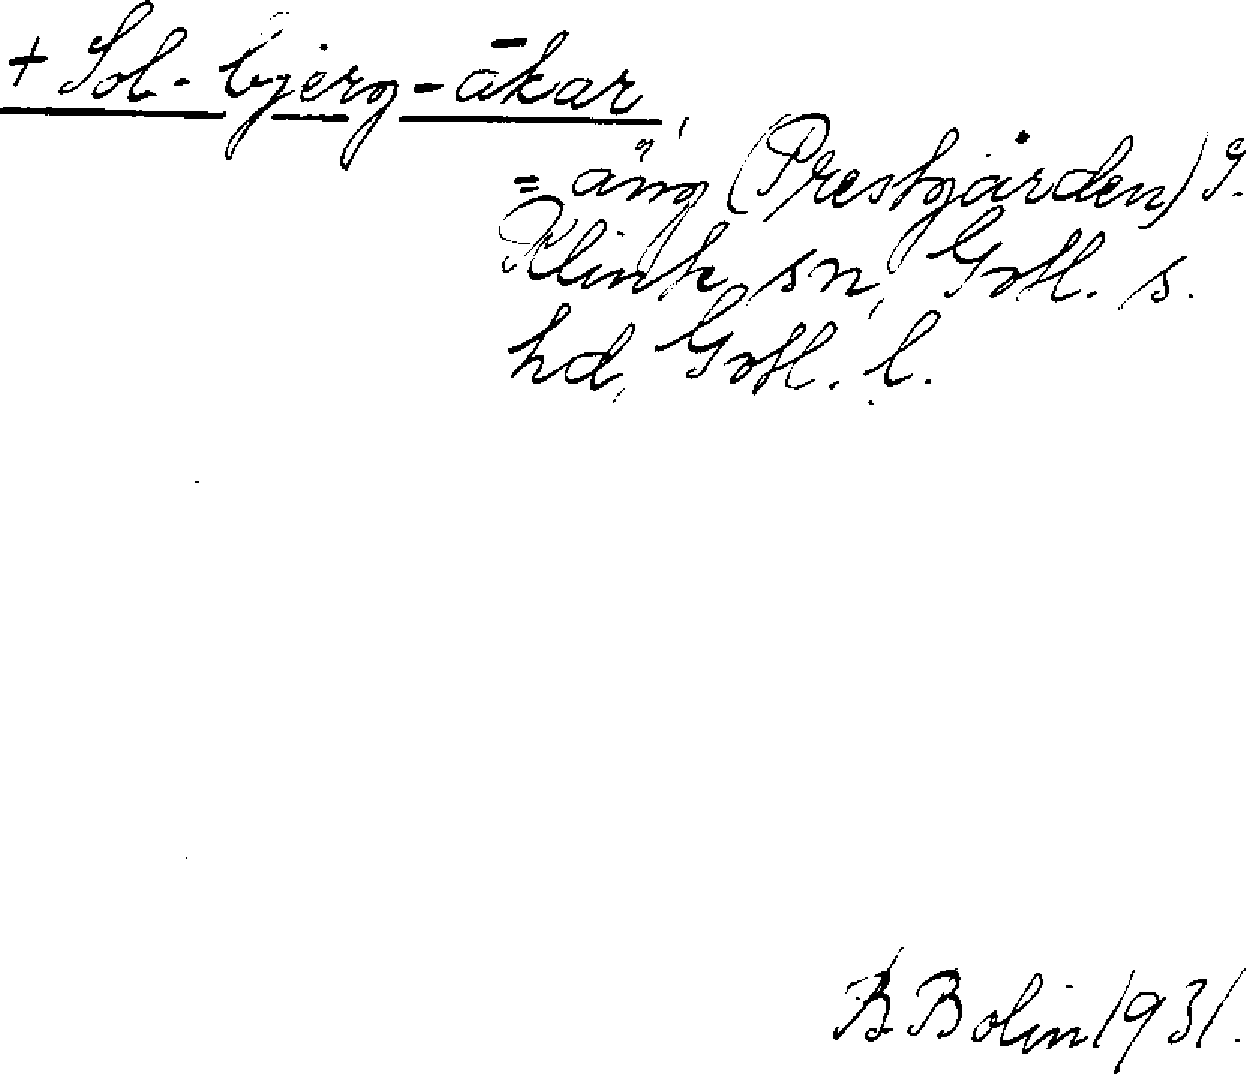 + Sol-bjerg-åkar,
= äng (Prestgården) g.
Klinte sn, Gotl. s.
hd, Gotl. l.
B Bolin 1931.